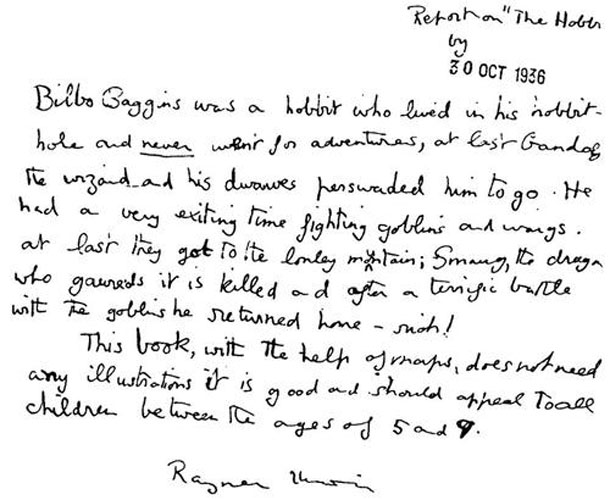 Report on "The Hobbi
by
30 OCT 1936
Bilbo Baggins was a hobbit who lived in his hobbit-
hole and never went for adventures, at last Gandalf
the wizard and his dwarves perswaded him to go. He
had a very exiting time fighting goblins and wargs.
at last they got to the lonley mountain; Smaug, the dragon
who gawreds it is killed and after a terrific battle
with the goblins he returned home - rich!
This book, with the help of maps, does not need
any illustrations it is good and should appeal to all
children between the ages of 5 and 9.
Rayner Unwin